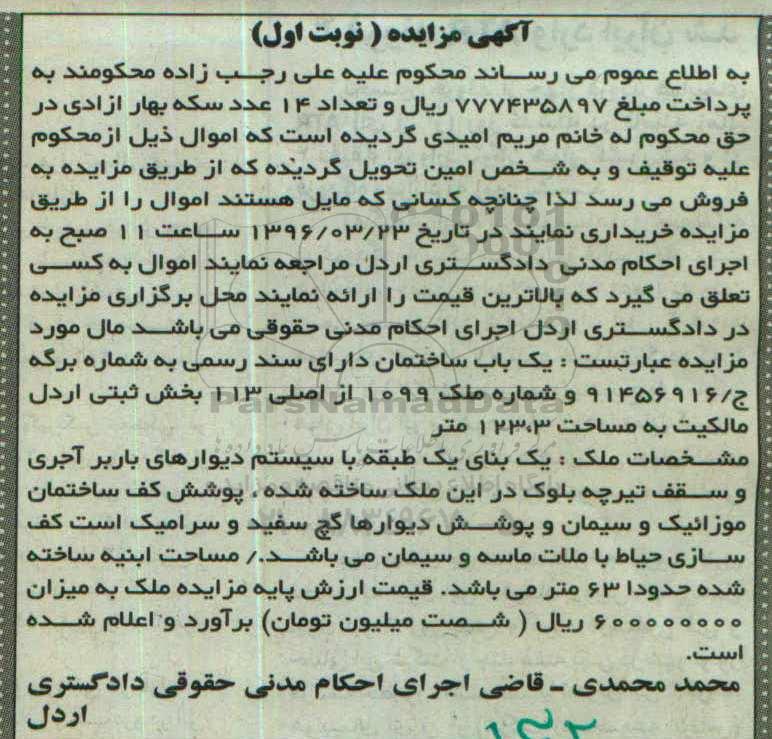 آگهی مزایده ( نوبت اول)
به اطلاع عموم می رساند محکوم علیه علی رجب زاده محکومند به
پرداخت مبلغ ۷۷۷۴۳۵۸۹۷ ریال و تعداد ۱۴ عدد سکه بهار ازادی در
حق محکوم له خانم مریم امیدی گردیده است که اموال ذیل ازمحکوم
علیه توقیف و به شخص امین تحویل گردیده که از طریق مزایده به
فروش می رسد لذا چنانچه کسانی که مایل هستند اموال را از طریق
مزایده خریداری نمایند در تاریخ ۱۳۹۶/۰۳/۲۳ ساعت ۱۱ صبح به
اجرای احکام مدنی دادگستری اردل مراجعه نمایند اموال به کسی
تعلق می گیرد که بالاترین قیمت را ارائه نمایند محل برگزاری مزایده
در دادگستری اردل اجرای احکام مدنی حقوقی می باشد مال مورد
مزایده عبارتست : یک باب ساختمان دارای سند رسمی به شماره برگه
ج/۹۱۴۵۶۹۱۶ و شماره ملک ۱۰۹۹ از اصلی ۱۱۳ بخش ثبتی اردل
ParsNamadData
مالکیت به مساحت ۱۲۳،۳ متر
مشخصات ملک : یک بنای یک طبقه با سیستم دیوارهای باربر آجری
و سقف تیرچه بلوک در این ملک ساخته شده ، پوشش کف ساختمان
موزائیک و سیمان و پوشش دیوارها گچ سفید و سرامیک است کف
سازی حیاط با ملات ماسه و سیمان می باشد./ مساحت ابنیه ساخته
شده حدودا ۶۳ متر می باشد. قیمت ارزش پایه مزایده ملک به میزان
۶۰۰۰۰۰۰۰۰ ریال ( شصت میلیون تومان) برآورد و اعلام شده
است.
محمد محمدی ـ قاضی اجرای احکام مدنی حقوقی دادگستری
اردل